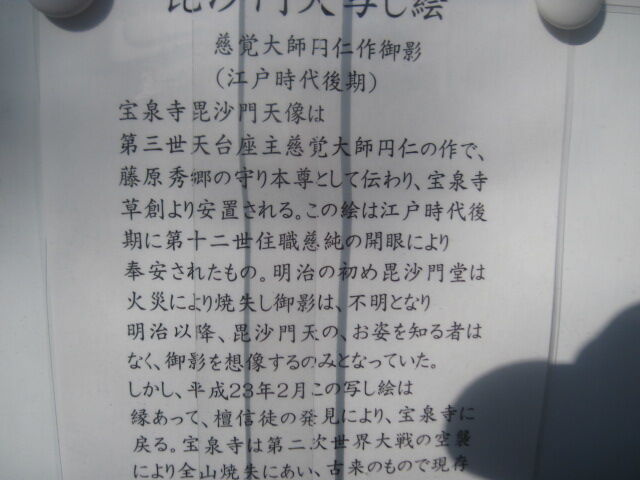 毘沙門天写し絵
慈覚大師円仁作御影
(江戸時代後期)
宝泉寺毘沙門天像は
第三世天台座主慈覚大師円仁の作で、
藤原秀郷の守り本尊として伝わり、宝泉寺
草創より安置される。この絵は江戸時代後
期に第十二世住職慈純の開眼により
奉安されたもの。明治の初め毘沙門堂は
火災により焼失し御影は、不明となり
明治以降、毘沙門天の、お姿を知る者は
なく、御影を想像するのみとなっていた。
しかし、平成23年2月この写し絵は
縁あって、檀信徒の発見により、宝泉寺に
戻る。宝泉寺は第二次世界大戦の空襲
により全山焼失にあい、古来のもので現存